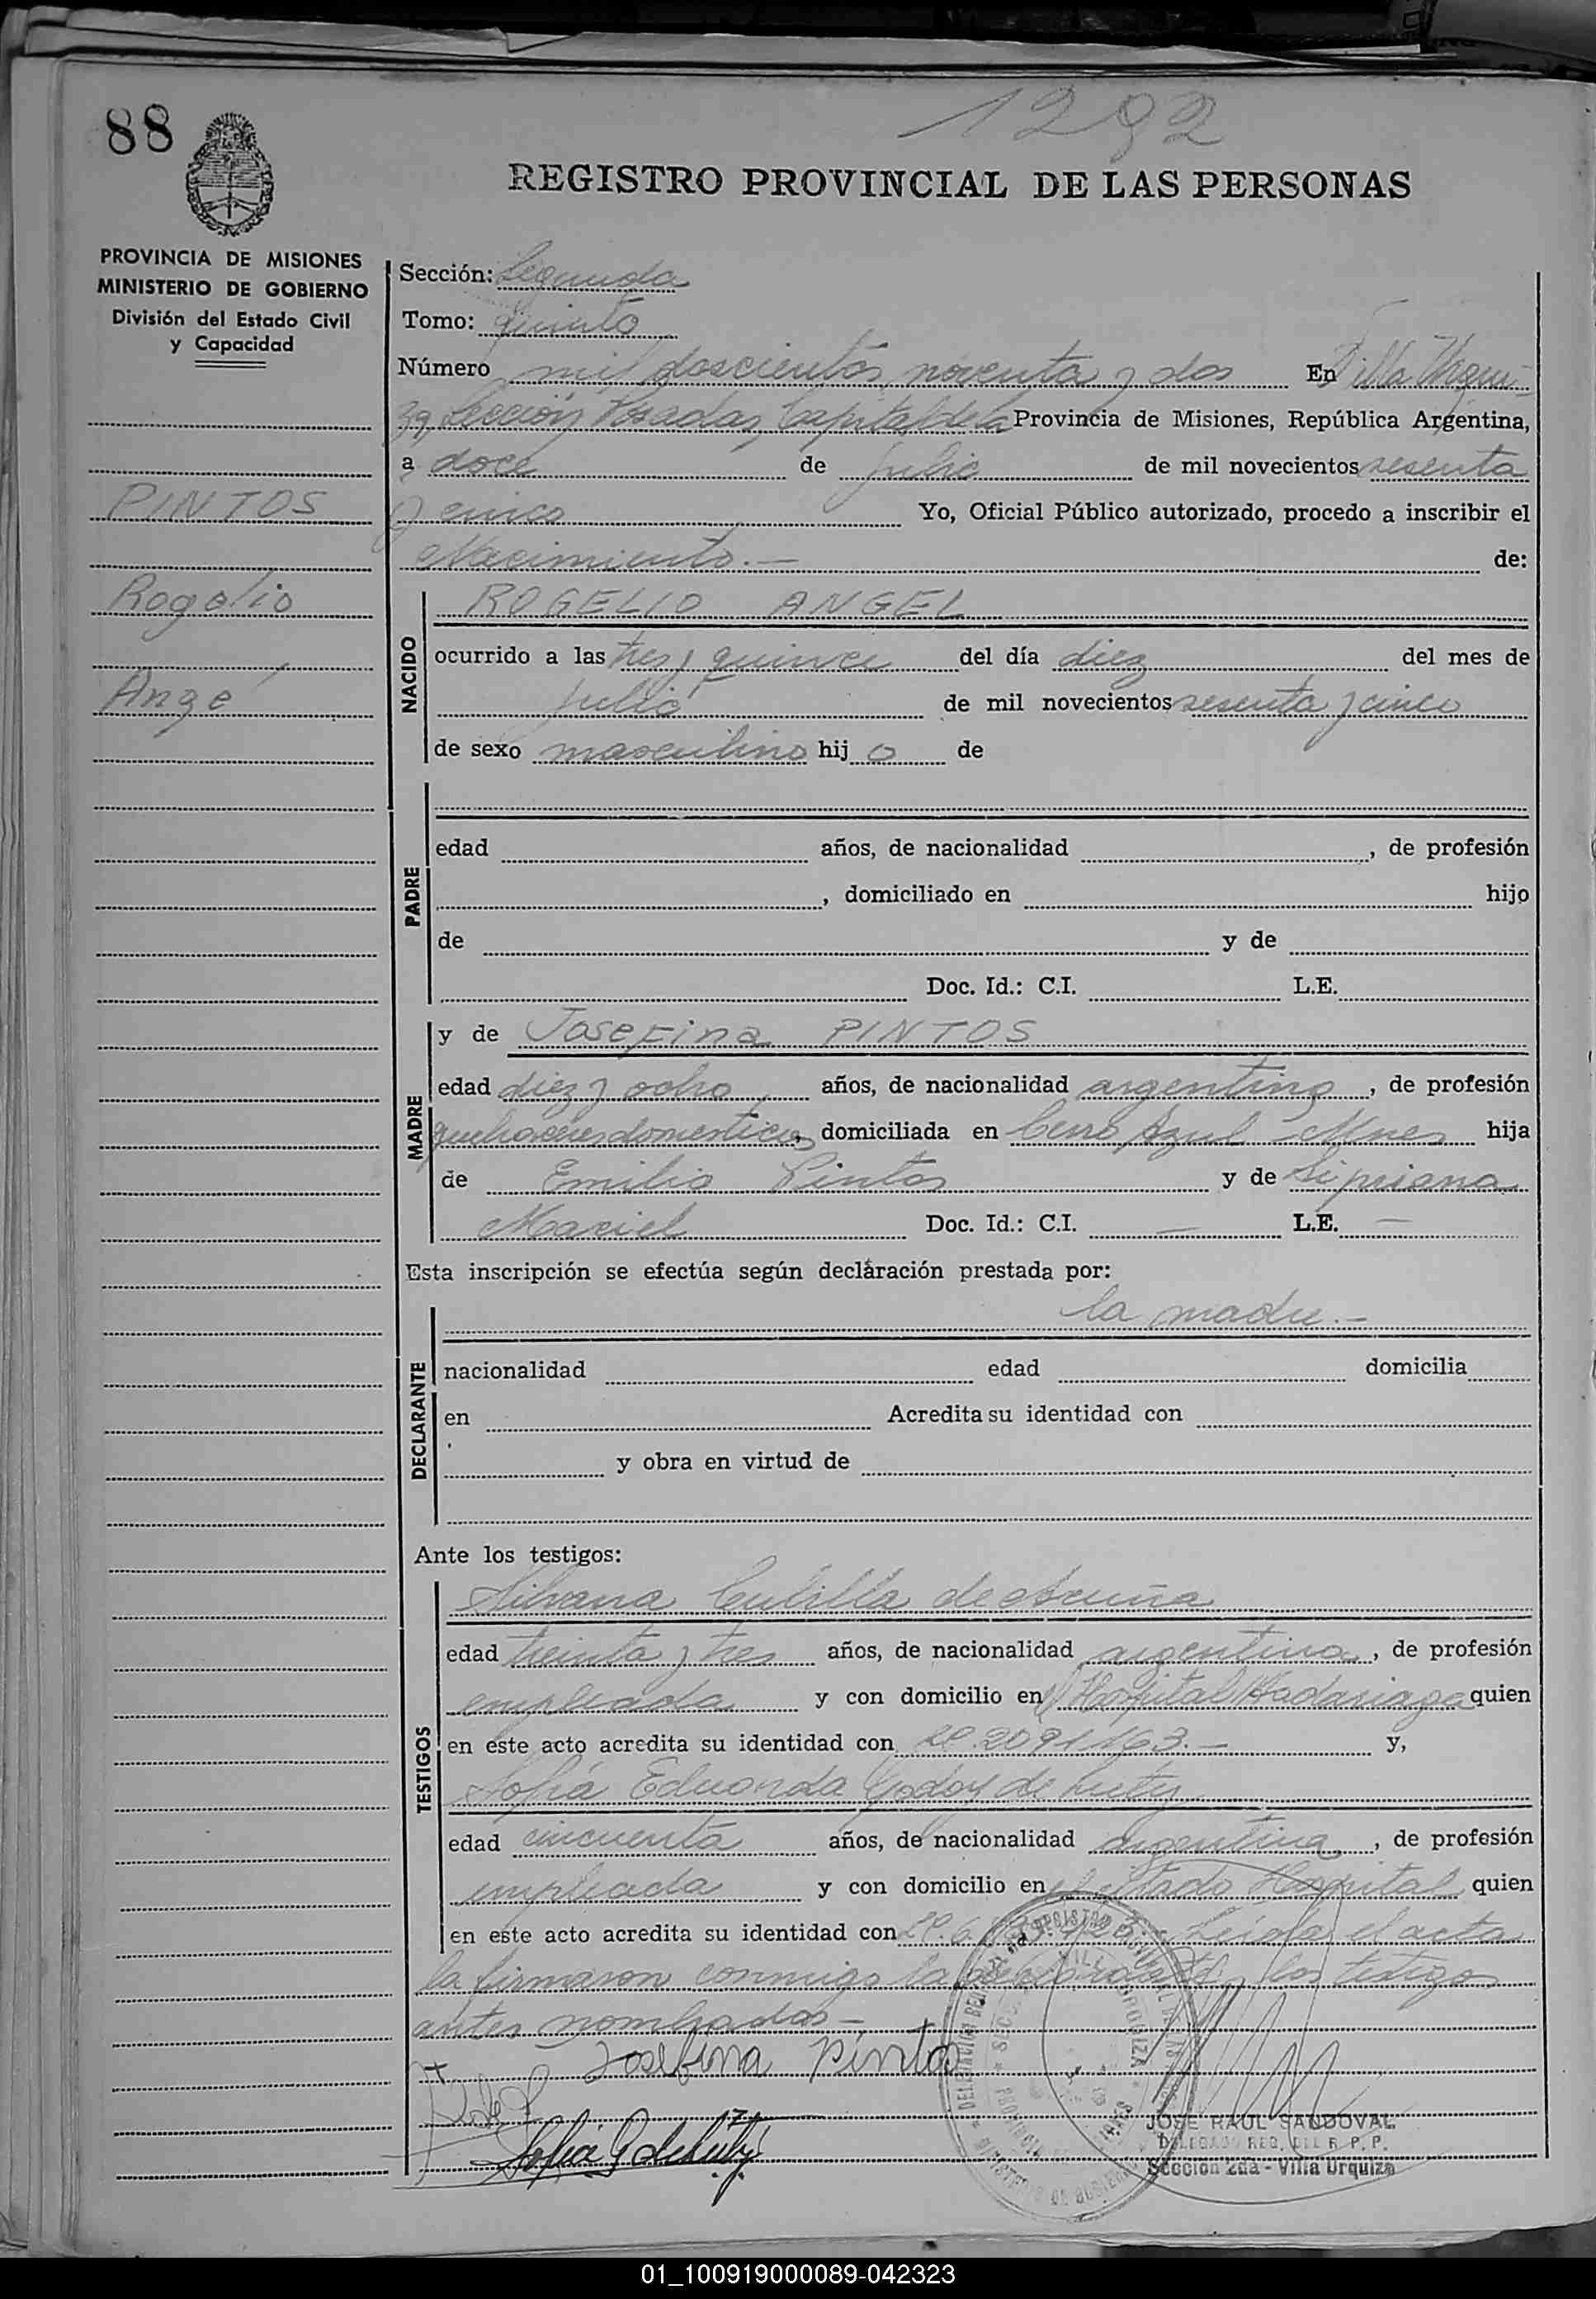 1292
88
REGISTRO PROVINCIAL DE LAS PERSONAS
PROVINCIA DE MISIONES
MINISTERIO DE GOBIERNO
División del Estado Civil
y Capacidad
PINTOS
Rogelio
Angel
Sección: Segunda
Tomo: quinto
Número mil doscientos noventa y dos En Villa Urqui-
za, Sección Posadas, Capital de la Provincia de Misiones, República Argentina,
a doce de julio de mil novecientos sesenta
y cinco Yo, Oficial Público autorizado, procedo a inscribir el
Nacimiento.- de:
NACIDO
ROGELIO ANGEL
ocurrido a las tres y quince del día diez del mes de
julio de mil novecientos sesenta y cinco
de sexo masculino hijo de
PADRE
edad años, de nacionalidad , de profesión
, domiciliado en hijo
de y de
Doc. Id.: C.I. L.E.
MADRE
y de Josefina PINTOS
edad diez y ocho años, de nacionalidad argentina, de profesión
quehaceres domesticos, domiciliada en Cerro Azul - Mnes hija
de Emilio Pintos y de Sipriana
Maciel Doc. Id.: C.I. — L.E. —
Esta inscripción se efectúa según declaración prestada por:
la madre.-
DECLARANTE
nacionalidad edad domicilia
en Acredita su identidad con
y obra en virtud de
Ante los testigos:
TESTIGOS
Silvana de Acuña
edad treinta y tres años, de nacionalidad argentina, de profesión
empleada y con domicilio en el Hospital Madariaga quien
en este acto acredita su identidad con 2091163.- y,
Sofia Eduarda Godoy de
edad cincuenta años, de nacionalidad argentina, de profesión
empleada y con domicilio en el citado Hospital quien
en este acto acredita su identidad con Leida el acta
la firmaron conmigo la y los testigos
antes nombrados-
Josefina Pintos
JOSE RAUL SANDOVAL
DELEGADO REG. DEL R. P. P.
Sección 2da - Villa Urquiza
01_100919000089-042323